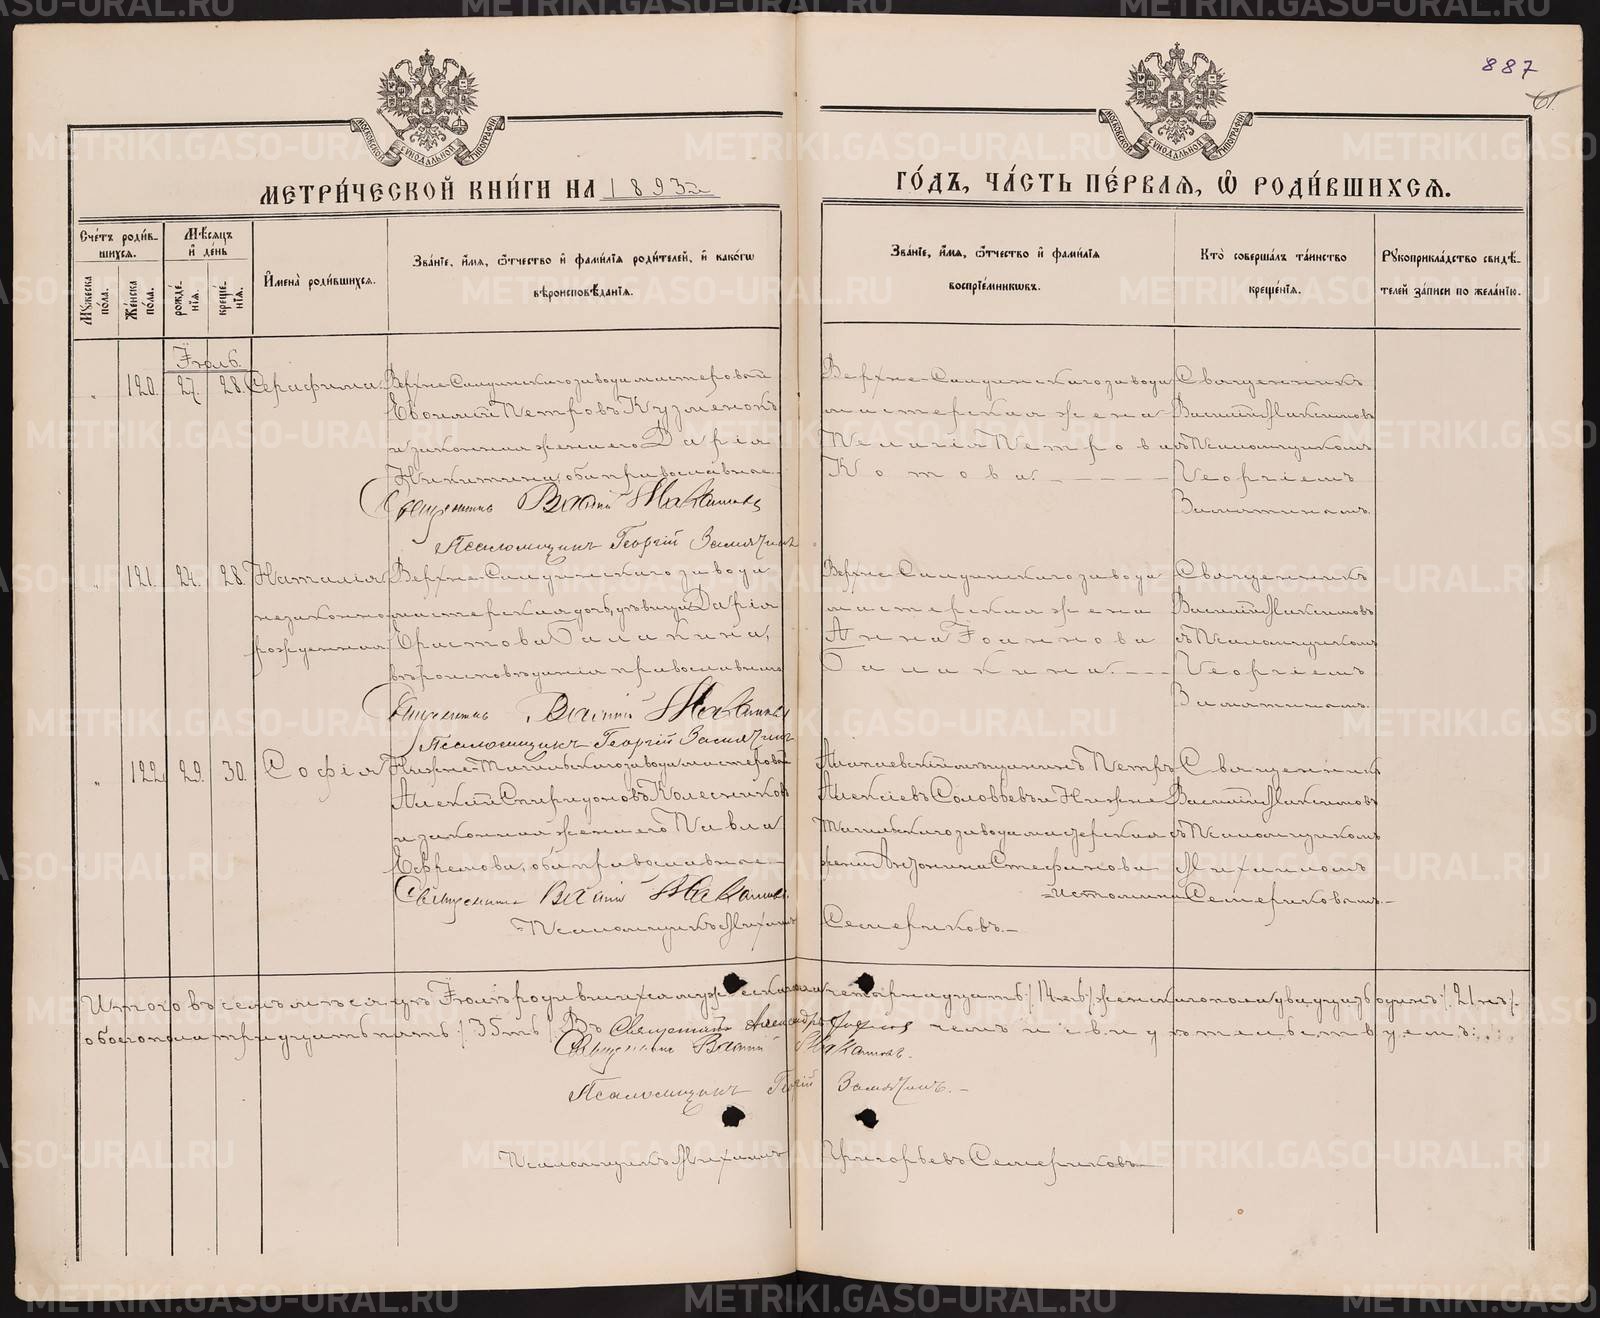 887
61.
МЕТРИ́ЧЕСКОЙ КНИ́ГИ НА 1893й
ГО́ДЪ, ЧА́СТЬ ПЕ́РВАѦ, Ѽ РОДИ́ВШИХСѦ.
Сче́тъ роди́в-
шихся.
Мѣ́сяцъ
и҆ де́нь
Мꙋ́жеска
пола.
Же́нска
по́ла.
рожде́-
нїѧ.
креще́-
нїѧ.
И҆мена̀ роди́вшихсѧ.
Зва́нїе, и҆́мѧ, ѻ҆́тчество и҆ фами́лїѧ роди́телей, и҆ како́гѡ
вѣроисповѣ́данїѧ.
Зва́нїе, и҆́мѧ, ѻ҆́тчество и҆ фами́лїѧ
воспрїе́мникѡвъ.
Кто̀ соверша́лъ та́инство
креще́нїѧ.
Рꙋкоприкла́дство свидѣ́-
телей за́писи по жела́нїю.
Іюль.
120. 27. 28. Серафима.
Верхне-Салдинскаго завода мастеровой
Евфимій Петровъ Кузменокъ
и законная жена его Дарія
Никитина, оба православные.
Священникъ Василій Максимовъ
Псаломщикъ Георгій Замятинъ
Верхне-Салдинскаго завода
мастерская жена
Пелагія Петрова
Котова.
Священникъ
Василій Максимовъ
съ Псаломщикомъ
Георгіемъ
Замятинымъ.
121. 24. 28. Наталія
незаконно
рожденная
Верхне-Салдинскаго завода
мастерская дочь, дѣвица Дарія
Ерастова Балакина,
вѣроисповѣданія православнаго
Священникъ Василій Максимовъ
Псаломщикъ Георгій Замятинъ
Верхне-Салдинскаго завода
мастерская жена
Анна Іоаннова
Балакина.
Священникъ
Василій Максимовъ
съ Псаломщикомъ
Георгіемъ
Замятинымъ.
122. 29. 30. Софія
Нижне-Тагильскаго завода мастеровой
Алексій Спиридоновъ Колесниковъ
и законная жена его Павла
Ефремова, оба православные
Священникъ Василій Максимовъ
Псаломщикъ Михаилъ Семериковъ.
Алапаевскій мѣщанинъ Петръ
Алексіевъ Соловьевъ и Нижне
Тагильскаго завода мастерская
жена Антонина Стефанова
Истомина
Священникъ
Василій Максимовъ
съ Псаломщикомъ
Михаиломъ
Семериковымъ.
Итого въ семъ мѣсяцѣ Іюлѣ родившихся мужескаго пола четырнадцать /14ть/ женскаго пола двадцать одинъ /21нъ/.
обоего пола тридцать пять /35ть/. Въ чемъ и свидѣтельствуемъ:
Священникъ Александръ
Священникъ Василій Максимовъ.
Псаломщикъ Георгій Замятинъ.
Псаломщикъ Михаилъ Григорьевъ Семериковъ
METRIKI.GASO-URAL.RU